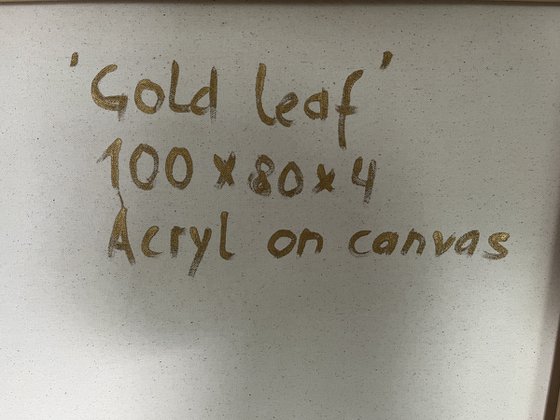 'Gold leaf'
100 x 80 x 4
Acryl on canvas